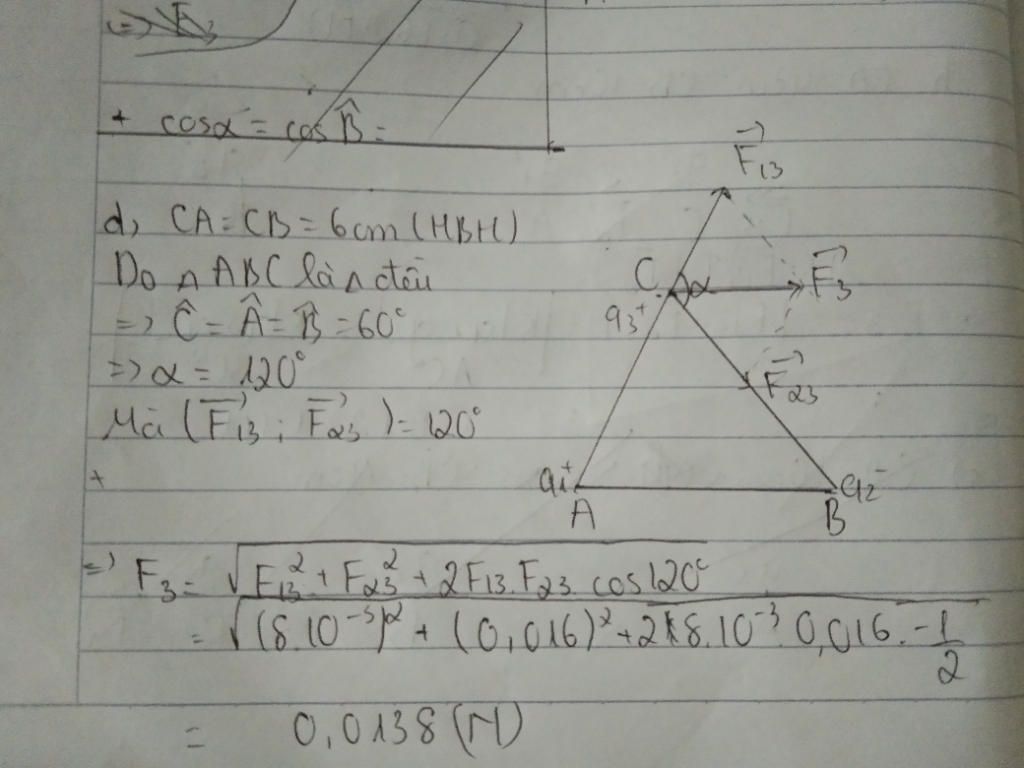 + cosα = cos B̂ =
d, CA = CB = 6cm (HBH)
Do △ ABC là △ đều
=> Ĉ = Â = B̂ = 60°
=> α = 120°
Mà (F⃗13 ; F⃗23) = 120°
+
F⃗13
C
α
F⃗3
q3+
F⃗23
q1+
q2-
A
B
=> F3 = √(F13² + F23² + 2F13.F23.cos120°)
= √((8.10⁻³)² + (0,016)² + 2.8.10⁻³.0,016.-1/2)
= 0,0138 (N)